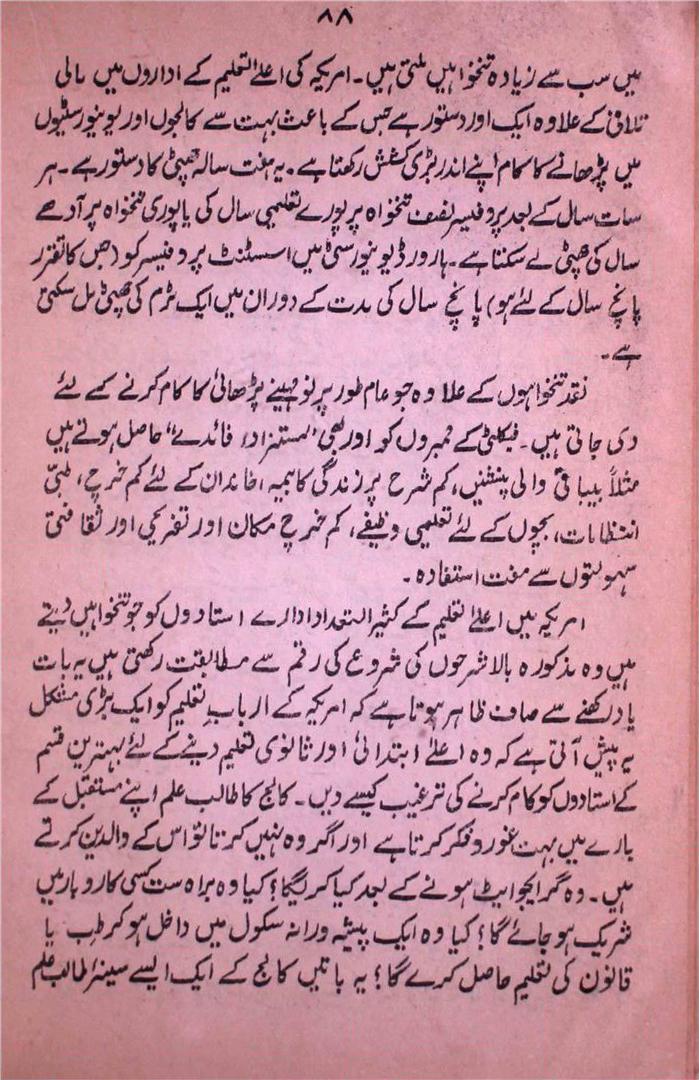 ۸۸
میں سب سے زیادہ تنخواہیں ملتی ہیں۔ امریکہ کی اعلےٰ التعلیم کے اداروں میں مالی
تلافی کے علاوہ ایک اور دستور ہے جس کے باعث بہت سے کالجوں اور یونیورسٹیوں
میں پڑھانے کا کام اپنے اندر بڑی کشش رکھتا ہے۔ یہ ہفت سالہ چھٹی کا دستور ہے۔ ہر
سات سال کے بعد پروفیسر نصف تنخواہ پر پورے تعلیمی سال کی یا پوری تنخواہ پر آدھے
سال کی چھٹی لے سکتا ہے۔ ہارورڈ یونیورسٹی میں اسسٹنٹ پروفیسر کو (جس کا تقرر
پانچ سال کے لئے ہو) پانچ سال کی مدت کے دوران میں ایک ٹرم کی چھٹی مل سکتی
ہے۔
نقد تنخواہوں کے علاوہ جو عام طور پر نو مہینے پڑھائی کا کام کرنے کے لئے
دی جاتی ہیں۔ فیکلٹی کے ممبروں کو اور بھی "مستزاد فائدے" حاصل ہوتے ہیں
مثلاً بیباقی والی پنشنیں، کم شرح پر زندگی کا بیمہ، خاندان کے لئے کم خرچ، طبّی
انتظامات، بچوں کے لئے تعلیمی وظیفے، کم خرچ مکان اور تفریحی اور ثقافتی
سہولتوں سے مفت استفادہ۔
امریکہ میں اعلےٰ تعلیم کے کثیر التعداد ادارے استادوں کو جو تنخواہیں دیتے
ہیں وہ مذکورہ بالا شرحوں کی شروع کی رقم سے مطابقت رکھتی ہیں یہ بات
یاد رکھنے سے صاف ظاہر ہوتا ہے کہ امریکہ کے ارباب تعلیم کو ایک بڑی مشکل
یہ پیش آتی ہے کہ وہ اعلےٰ ابتدائی اور ثانوی تعلیم دینے کے لئے بہترین قسم
کے استادوں کو کام کرنے کی ترغیب کیسے دیں۔ کالج کا طالب علم اپنے مستقبل کے
بارے میں بہت غور و فکر کرتا ہے اور اگر وہ نہیں کرتا تو اس کے والدین کرتے
ہیں۔ وہ گرایجوایٹ ہونے کے بعد کیا کریگا؟ کیا وہ براہ ست کسی کاروبار میں
شریک ہو جائے گا؟ کیا وہ ایک پیشہ ورانہ سکول میں داخل ہو کر طب یا
قانون کی تعلیم حاصل کرے گا؟ یہ باتیں کالج کے ایک ایسے سینئر طالب علم